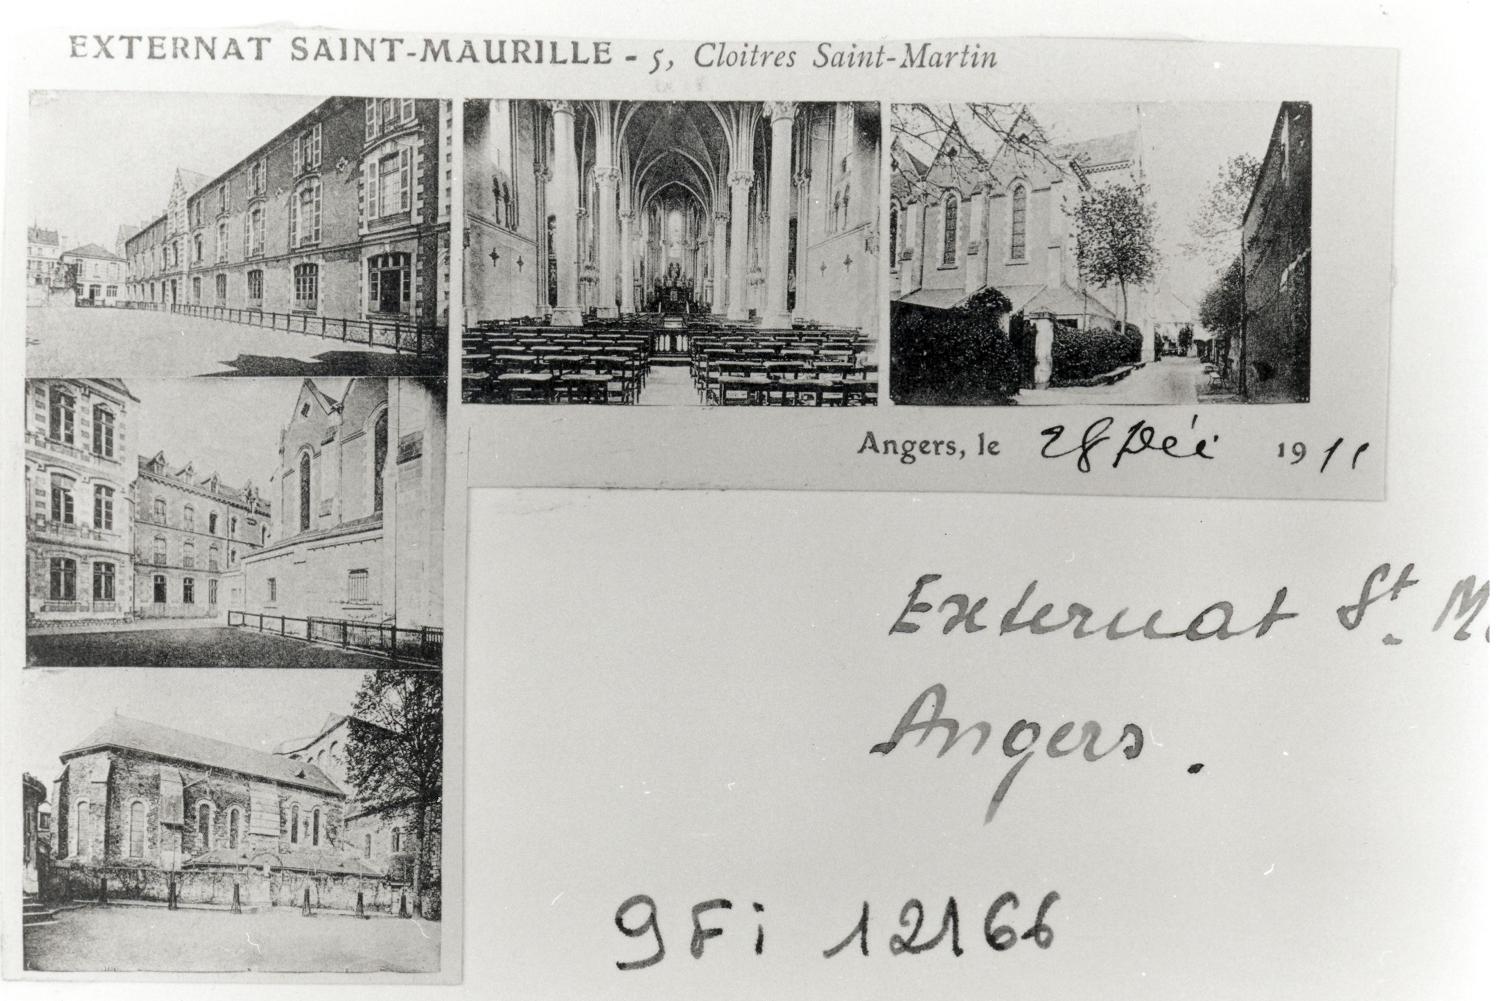 EXTERNAT SAINT-MAURILLE - 5, Cloitres Saint-Martin
Angers, le 28 Déc 1911
Externat St. M
Angers.
9 Fi 12166